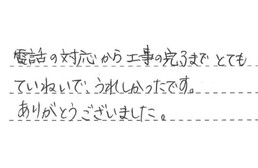 電話の対応から工事の完了まで とても
ていねいで、うれしかったです。
ありがとうございました。